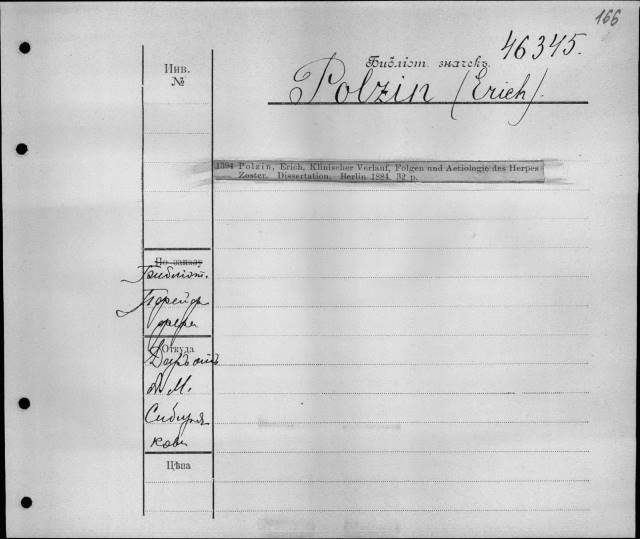 166
46345.
Инв.
№
Библіот. значекъ.
Polzin (Erich).
1394 Polzin, Erich, Klinischer Verlauf, Folgen und Aetiologie des Herpes
Zoster. Dissertation. Berlin 1884. 32 p.
По заказу
Библіот.
Откуда
Даръ отъ
А. М.
Сибиря
кова
Цѣна